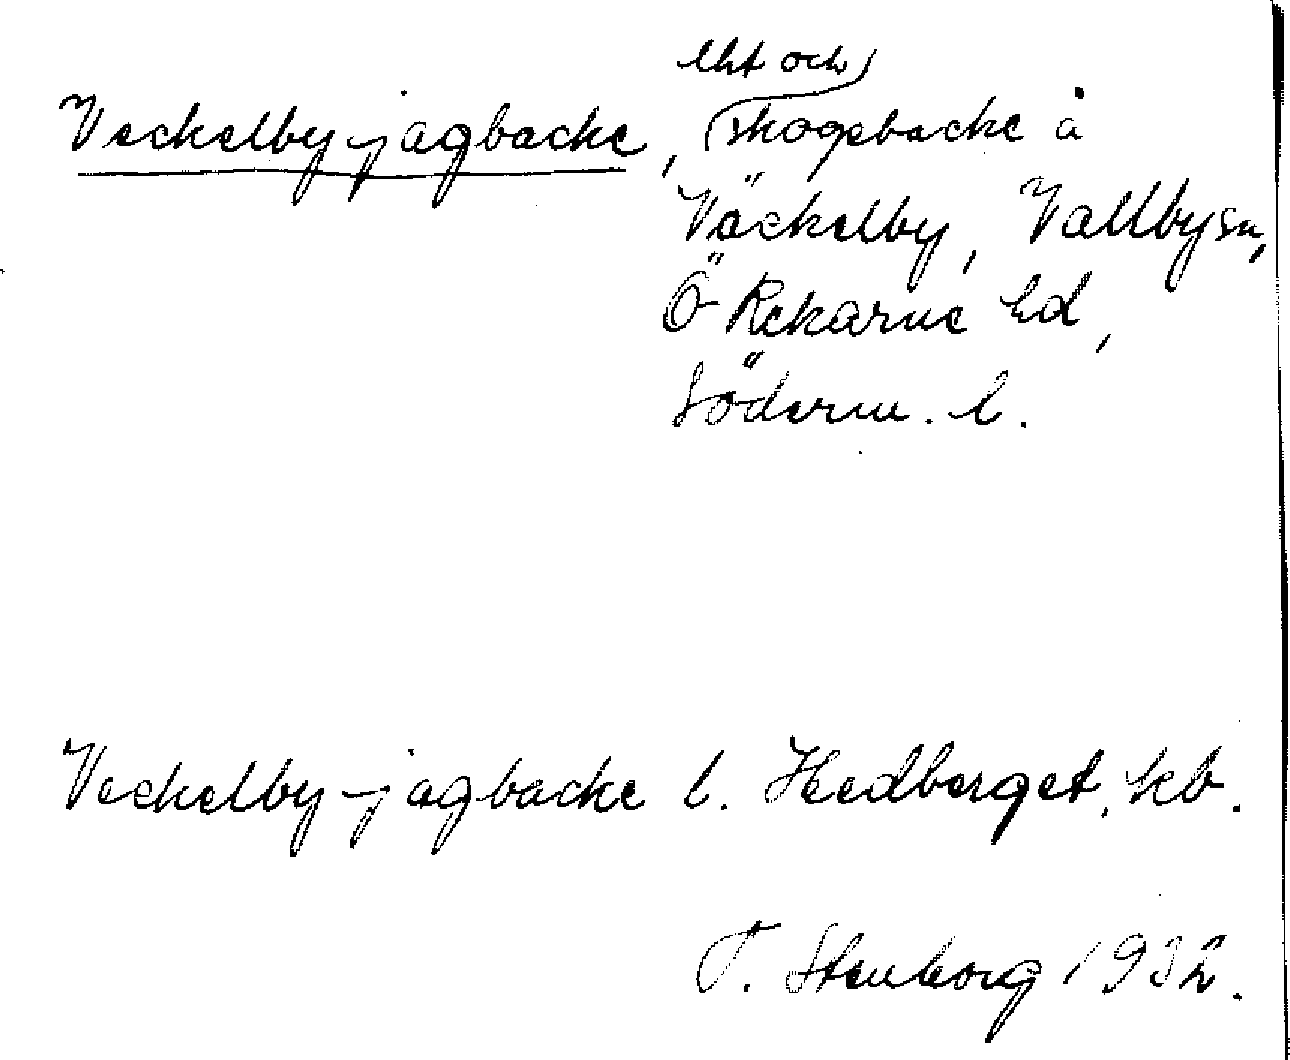 lht och
Veckelby-jagbacke, skogsbacke å
Väckelby, Vallby sn,
Ö Rekarne hd,
Söderm. l.
Veckelby-jagbacke l. Hedberget, kb.
T. Stenborg 1932.